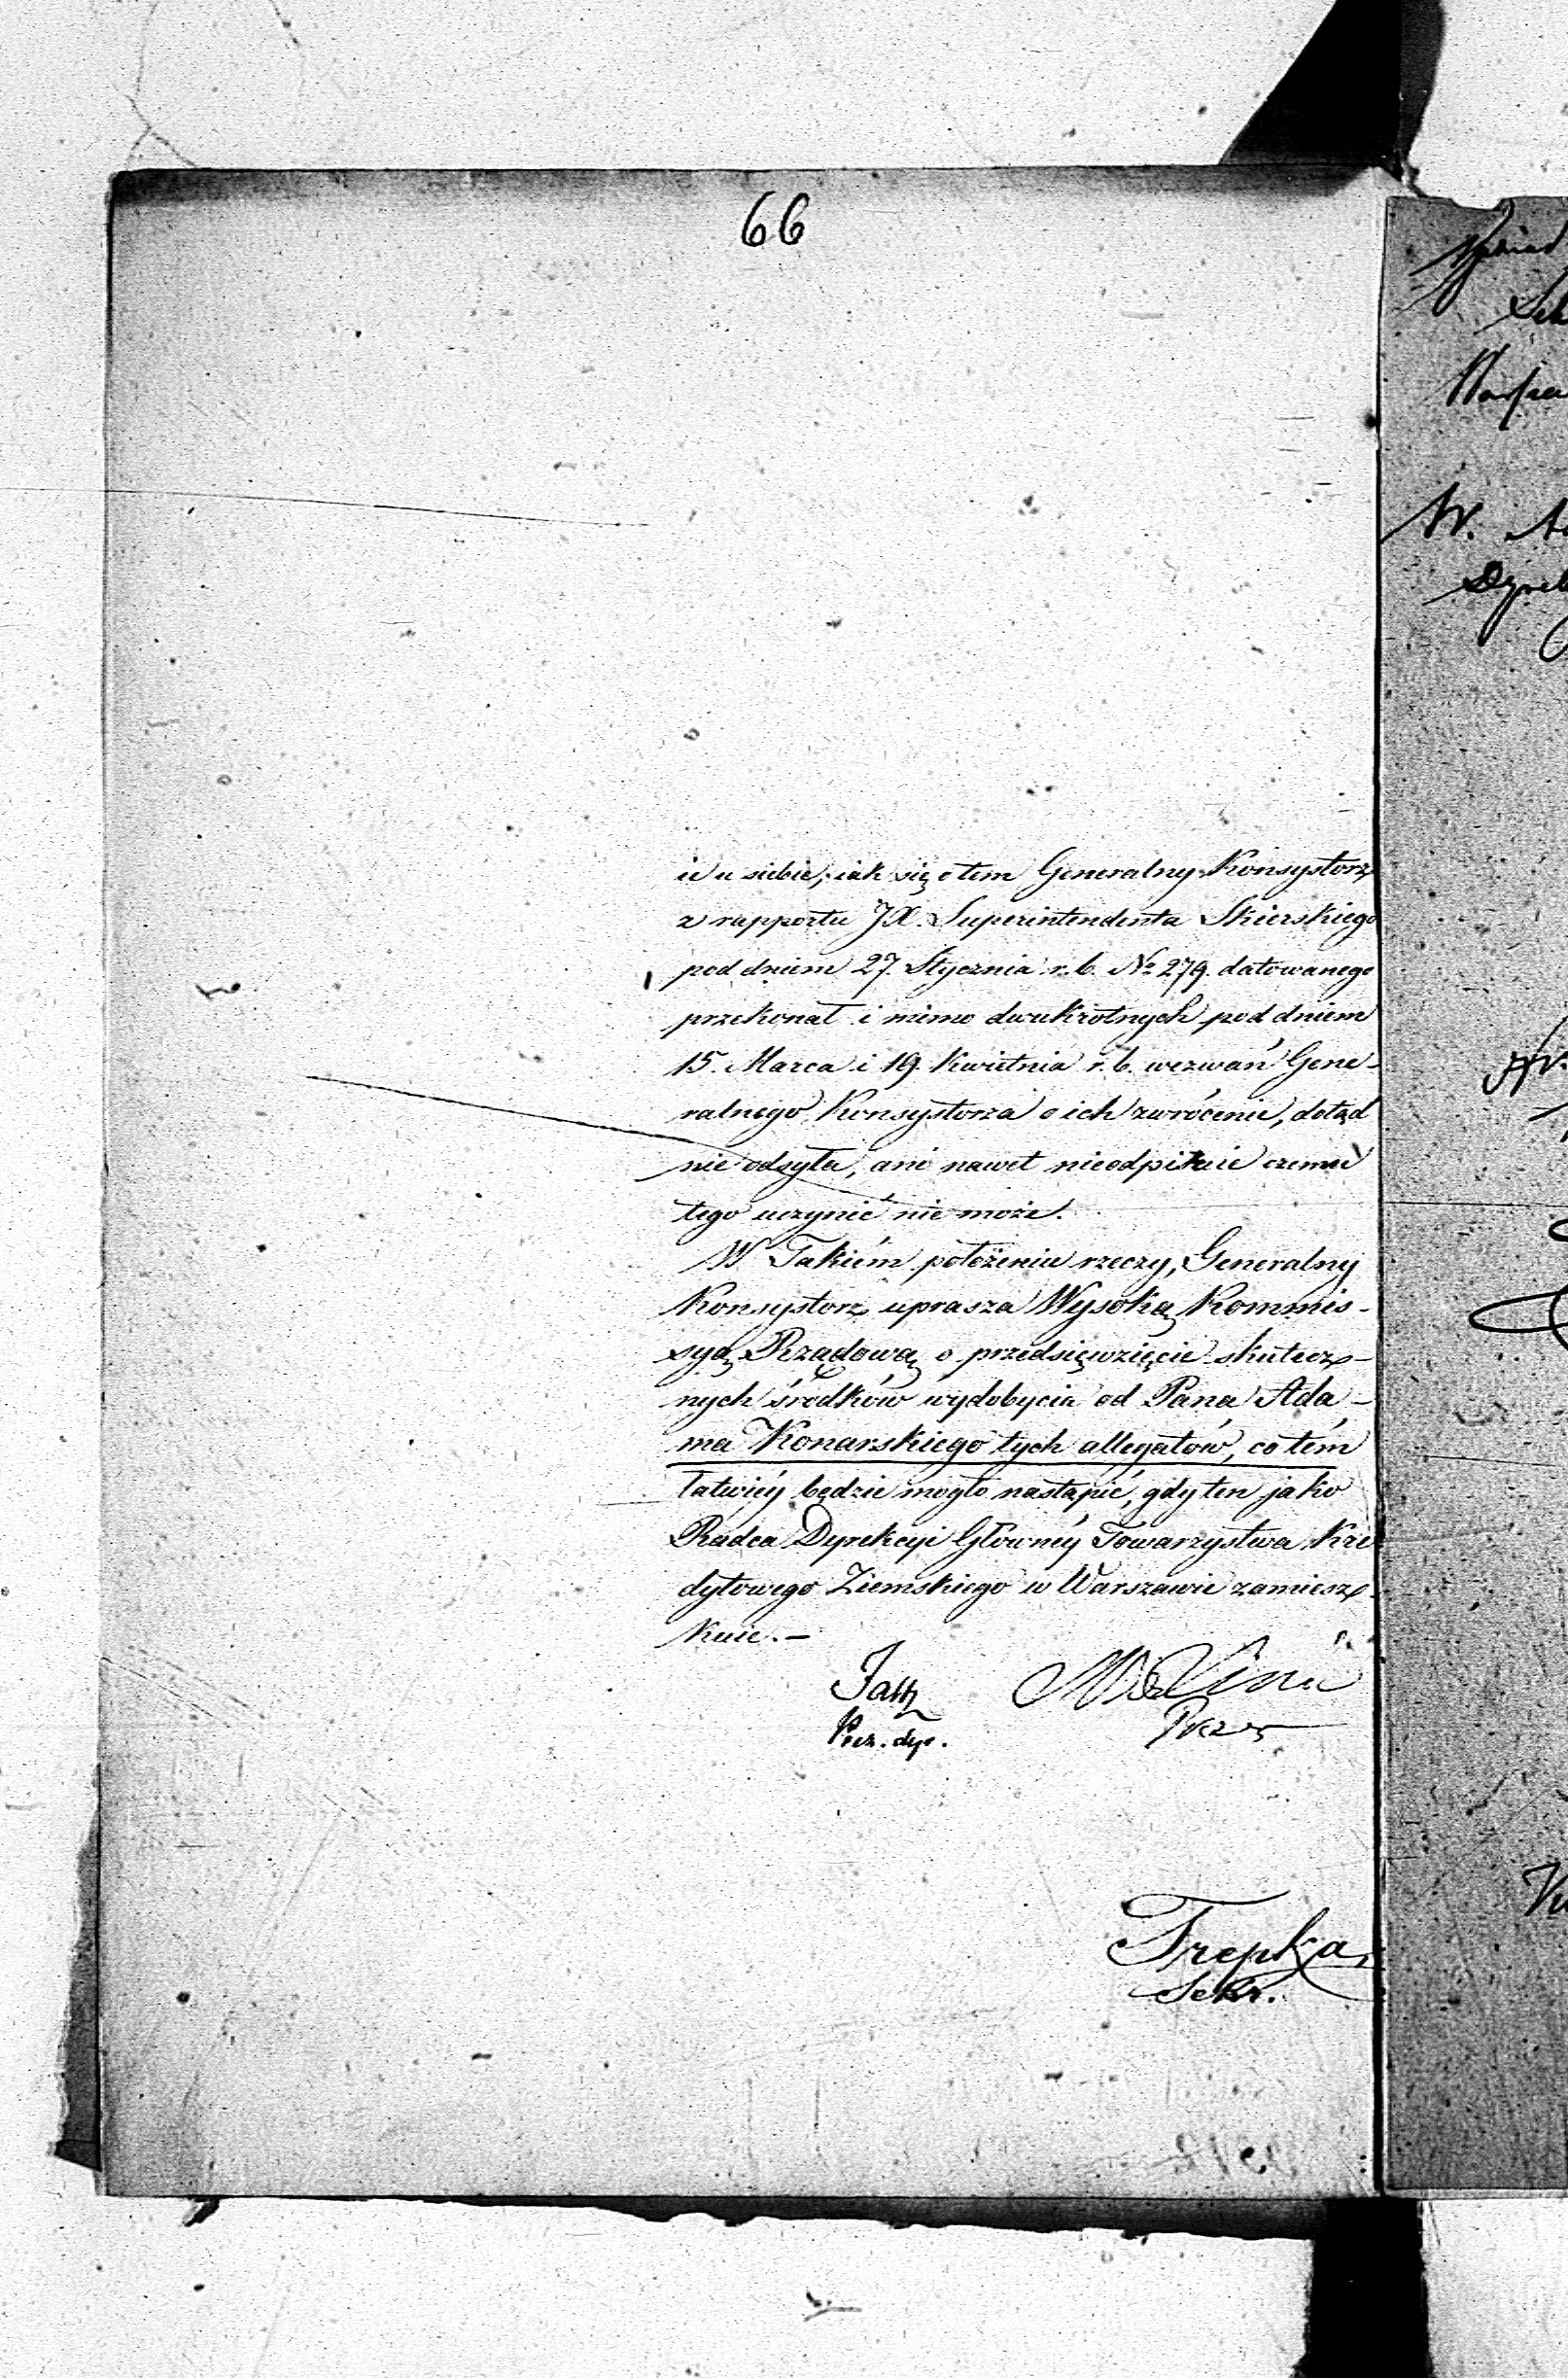 66
ie u siebie, iak się o tem Generalny Konsystorz
z rapportu JX. Superintendenta Skierskiego
pod dniem 27. Stycznia r. b. No 279. datowanego
przekonał i mimo dwukrotnych pod dniem
15. Marca i 19. Kwietnia r. b. wezwań Gene-
ralnego Konsystorza o ich zwrócenie, dotąd
nie odsyła, ani nawet nieodpisuie czemu
tego uczynić nie może.
W Takiém położeniu rzeczy, Generalny
Konsystorz uprasza Wysoką Kommis-
syą Rządową o przedsięwzięcie skutecz-
nych środków wydobycia od Pana Ada-
ma Konarskiego tych allegatów, co tém
łatwiéy będzie mogło nastąpić, gdy ten jako
Radca Dyrekcyi Głównéy Towarzystwa Kre
dytowego Ziemskiego w Warszawie zamiesz-
kuie. —
Prezes
Trepka
Sekr.
W.